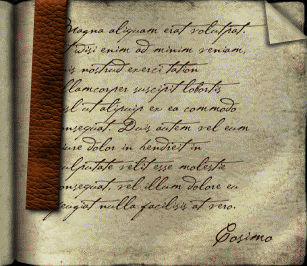 Magna aliquam erat volutpat.
wisi enim ad minim veniam,
is nostrud exerci tation
llamcorper suscipit lobortis
sl ut aliquip ex ea commodo
nsequat. Duis autem vel eum
iure dolor in hendrerit in
ulputate velit esse molestie
onsequat, vel illum dolore eu
feugiat nulla facilisis at vero.
Cosimo